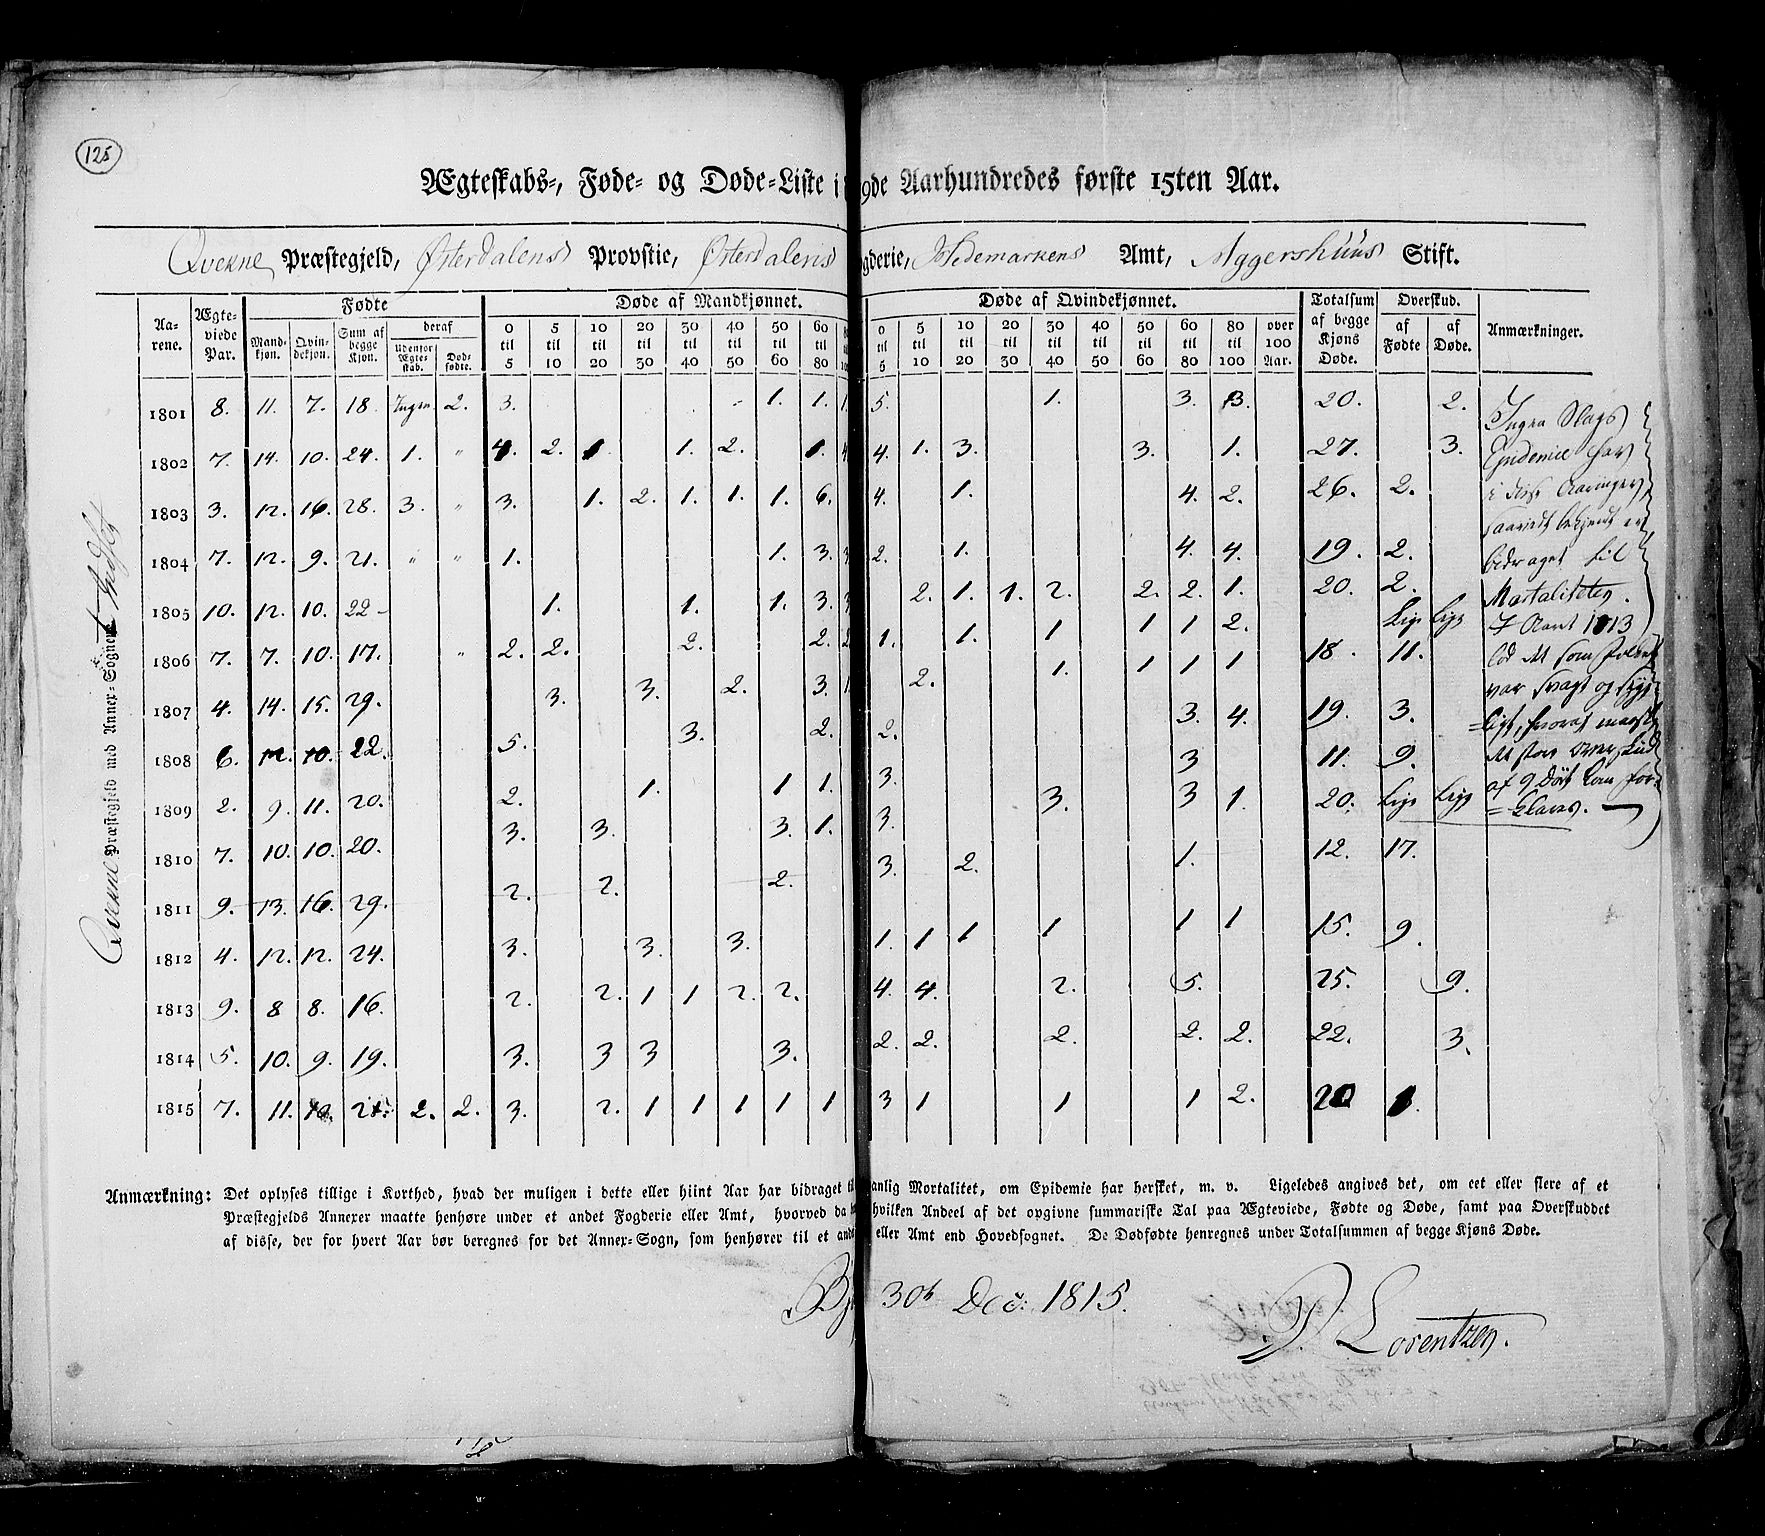 125
Ægteskabs-, Føde- og Døde-Liste i 9de Aarhundredes første 15ten Aar.
Qvekne Præstegjeld, Østerdalens Provstie, Østerdalens gderie, Hedemarkens Amt, Aggershuus Stift.
Aarene. Ægteviede Par. Fødte Døde af Mandkjønnet. Døde af Qvindekjønnet. Totalsum af begge Kjøns Døde. Overskud. Anmærkninger.
Mandkjøn. Qvindekjøn. Sum af begge Kjøn. deraf Udenfor Ægteskab. Dødfødte. 0 til 5 5 til 10 10 til 20 20 til 30 30 til 40 40 til 50 50 til 60 60 til 80 0 til 5 5 til 10 10 til 20 20 til 30 30 til 40 40 til 50 50 til 60 60 til 80 80 til 100 over 100 Aar. af Fødte af Døde.
1801 8. 11. 7. 18. Ingen 2. 3. 1. 1. 1. 5. 1. 3. 3. 20. 2.
1802 7. 14. 10. 24. 1. " 4. 2. 1 1. 2. 1. 4 4. 1. 3. 3. 1. 27. 3.
1803 3. 12. 16. 28. 3. " 3. 1. 2. 1. 1. 1. 6. 4. 1. 4. 2. 26. 2.
1804 7. 12. 9. 21. " " 1. 1. 3. 3 2. 1. 4. 4. 19. 2.
1805 10. 12. 10. 22- 1. 1. 1. 3. 3 2. 1. 1. 2. 2. 2. 1. 20. 2.
1806 7. 7. 10. 17. " 2. 2. 2. 2. 2 1. 1. 1 1 1 2. Lige Lige
1807 4. 14. 15. 29. 3. 3. 2. 3. 1. 2. 1. 1 1 1 18. 11.
1808 6. 12. 10. 22. 5. 3. 2. 2. 3. 4. 19. 3.
1809 2. 9. 11. 20. 2. 1. 1 1. 3. 3 11. 9.
1810 7. 10. 10. 20. 3. 3. 3. 1. 3. 3. 3 1. 20. Lige Lige
1811 9. 13. 16. 29. 2. 2. 2. 3. 2. 1. 12. 17.
1812 4. 12. 12. 24. 3. 3. 3. 1. 1 1 1 1 1 15. 9.
1813 9. 8 8. 16. 2. 2. 1 1 2. 2. 4. 4. 2. 5. 25. 9.
1814 5. 10. 9. 19. 3. 3 3 3. 2. 2. 2. 2. 2. 22. 3.
1815 7. 11. 10. 21. 2. 2. 3. 2. 1 1 1 1 1 3 1 1 1 2. 20 1.
Ingen Slags
Epidemie har
i disse Aaringer,
saavidt bekjendt er
bidraget til
Mortaliteten.
I Aaret 1813
var svagt og
af 9 Døde kan for-
=klares.
Qvekne Præstegjeld med Annex-Sognene
Anmærkning: Det oplyses tillige i Korthed, hvad der muligen i dette eller hiint Aar har bidraget til anlig Mortalitet, om Epidemie har hersket, m. v. Ligeledes angives det, om eet eller flere af et
Præstegjelds Annexer maatte henhøre under et andet Fogderie eller Amt, hvorved da hvilken Andeel af det opgivne summariske Tal paa Ægteviede, Fødte og Døde, samt paa Overskuddet
af disse, der for hvert Aar bør beregnes for det Annex-Sogn, som henhører til et andet eller Amt end Hovedsognet. De Dødfødte henregnes under Totalsummen af begge Kjøns Døde.
30t Dec: 1815.
P. Lorentzen.